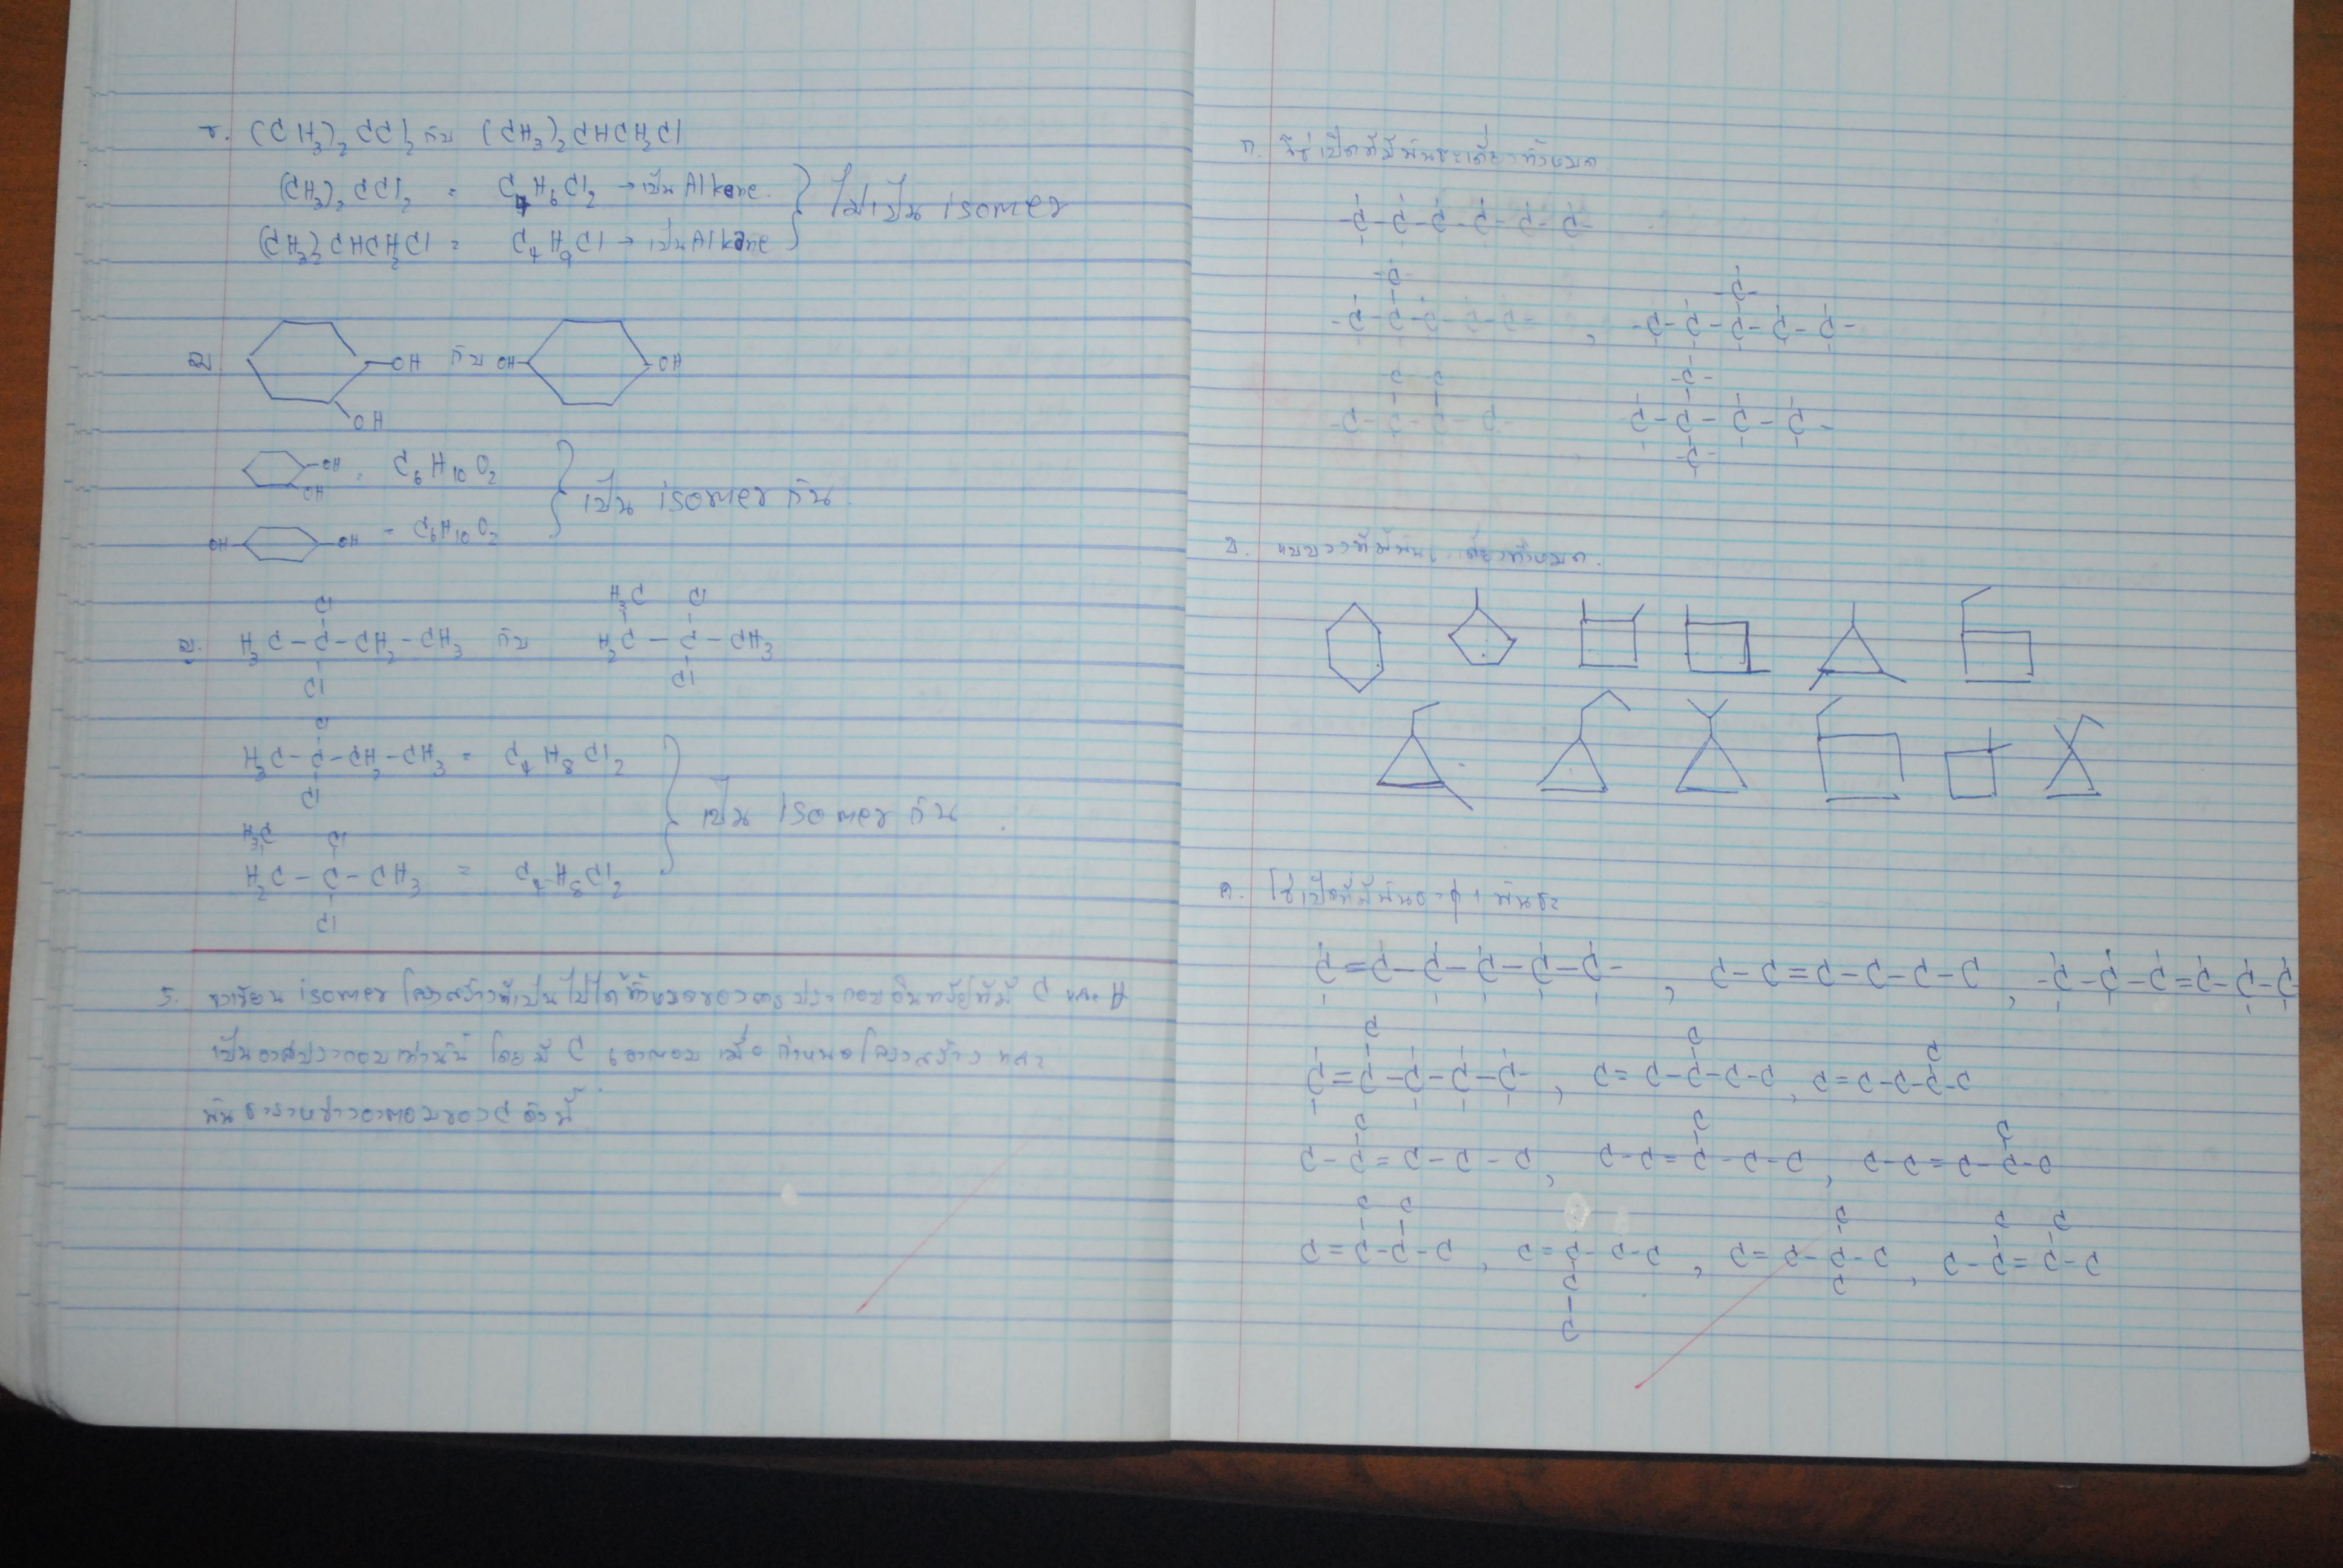 ช. (CH3)2CCl2 กับ (CH3)2CHCH2Cl
(CH3)2CCl2 = C4H6Cl2 → เป็น Alkane
(CH3)2CHCH2Cl = C4H9Cl → เป็น Alkane
ไม่เป็น isomer
OH กับ OH OH
OH
OH OH = C6H10O2
OH OH = C6H10O2
เป็น isomer กัน
Cl H3C Cl
H3C-C-CH2-CH3 กับ H2C-C-CH3
Cl Cl
Cl
H3C-C-CH2-CH3 = C4H8Cl2
Cl
H3C Cl
H2C-C-CH3 = C4H8Cl2
Cl
เป็น isomer กัน
5. จงเขียน isomer โครงสร้างที่เป็นไปได้ทั้งหมดของสารประกอบอินทรีย์ที่มี C และ H
เป็นองค์ประกอบเท่านั้น โดยมี C 6 อะตอม เมื่อกำหนดโครงสร้าง และ
พันธะระหว่างอะตอมของ C ดังนี้
ก. โซ่เปิดที่มีพันธะเดี่ยวทั้งหมด
-C-C-C-C-C-C-
-C- -C-
-C-C-C-C-C- , -C-C-C-C-C-
C C -C-
-C-C-C-C- -C-C-C-C-
-C-
ข. แบบวงที่มีพันธะเดี่ยวทั้งหมด.
ค. โซ่เปิดที่มีพันธะคู่ 1 พันธะ
C=C-C-C-C-C- , C-C=C-C-C-C , -C-C-C=C-C-C
C C C
C=C-C-C-C- , C=C-C-C-C , C=C-C-C-C
C C C
C-C=C-C-C , C-C=C-C-C , C-C=C-C-C
C C C C C
C=C-C-C , C=C-C-C , C=C-C-C , C-C=C-C
C C
C